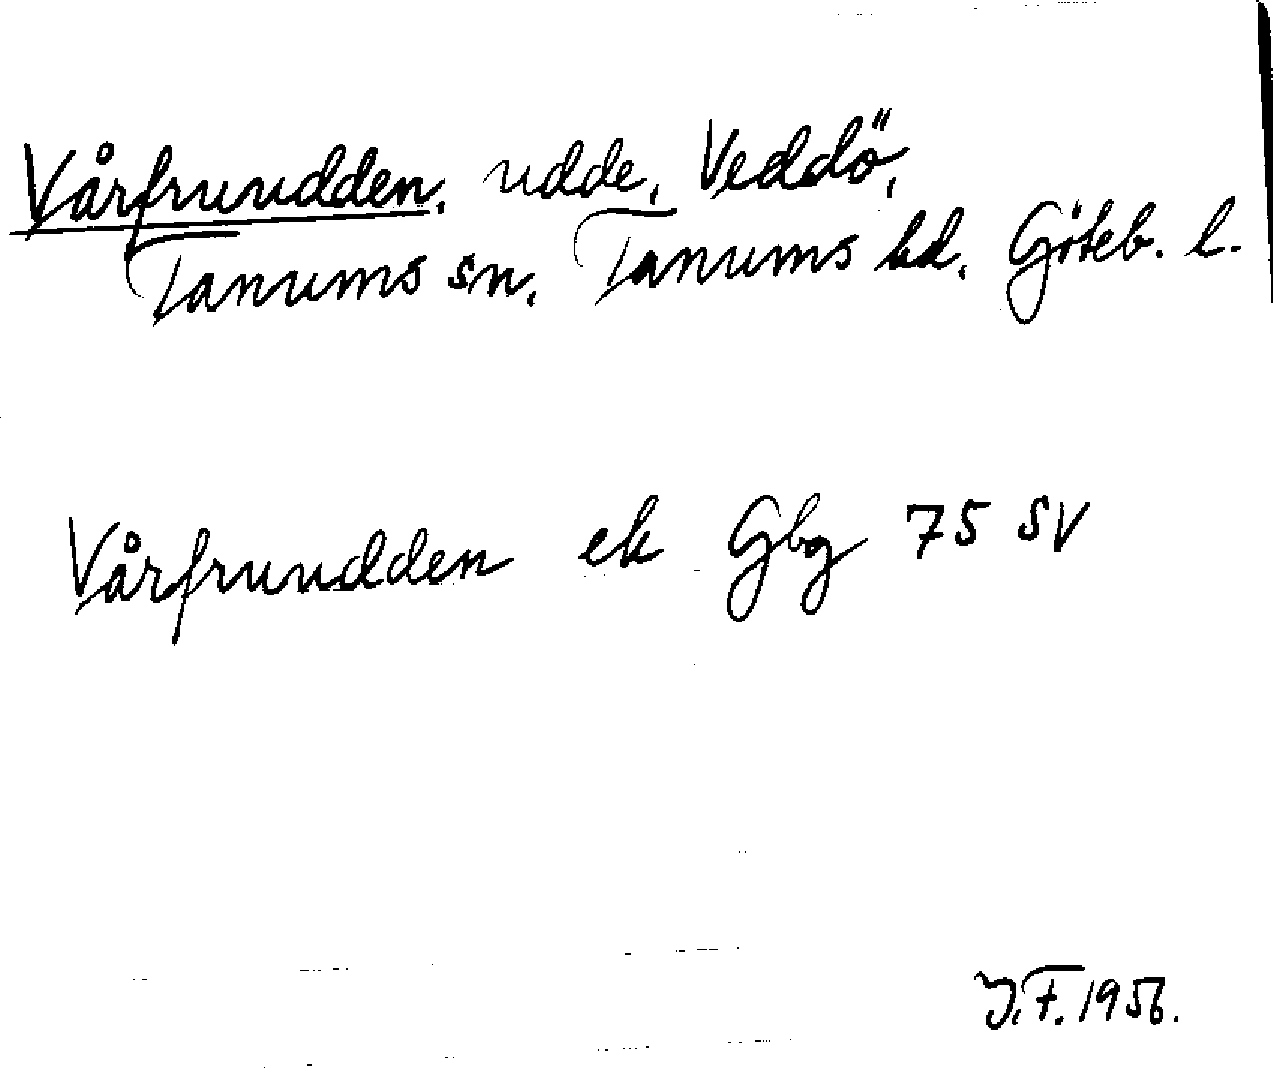 Vårfruudden, udde, Veddö,
Tanums sn, Tanums hd, Göteb. l.
Vårfruudden ek Gbg 75 SV
J.F. 1956.